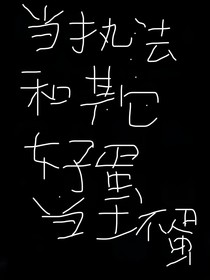 当执法
和其它
好蛋
当土不蛋